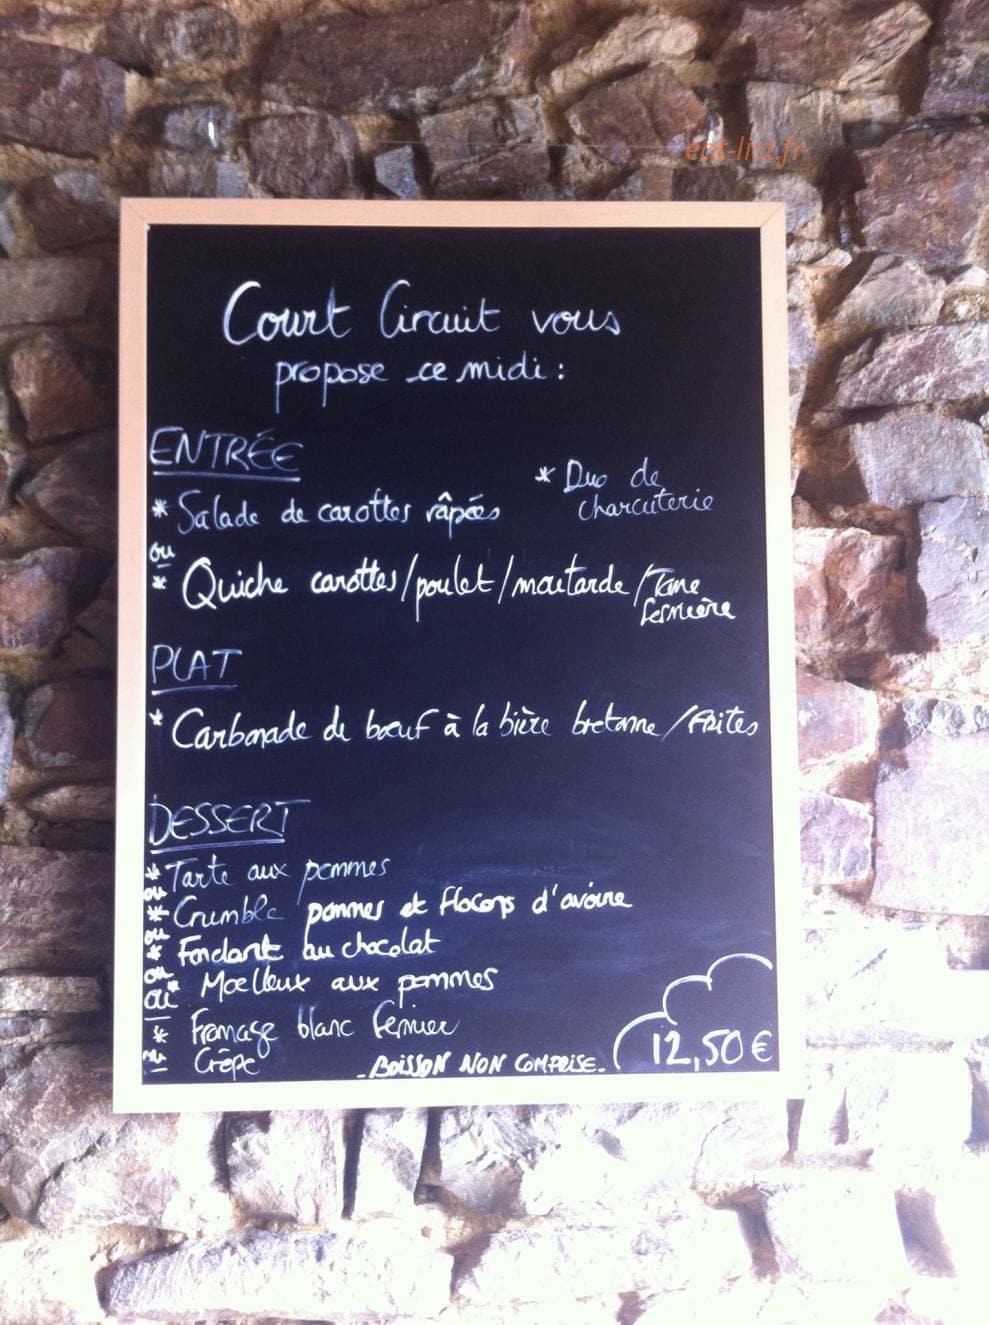 eat-list.fr
Court Circuit vous
propose ce midi :
ENTRÉE
* Salade de carottes râpées
* Duo de
charcuterie
ou
* Quiche carottes/poulet/moutarde/Tome
fermière
PLAT
* Carbonade de bœuf à la bière bretonne/frites
DESSERT
* Tarte aux pommes
ou
* Crumble pommes et flocons d'avoine
ou
* Fondant au chocolat
ou
* Moelleux aux pommes
ou
* Fromage blanc fermier
ou Crêpe
- BOISSON NON COMPRISE -
12,50 €